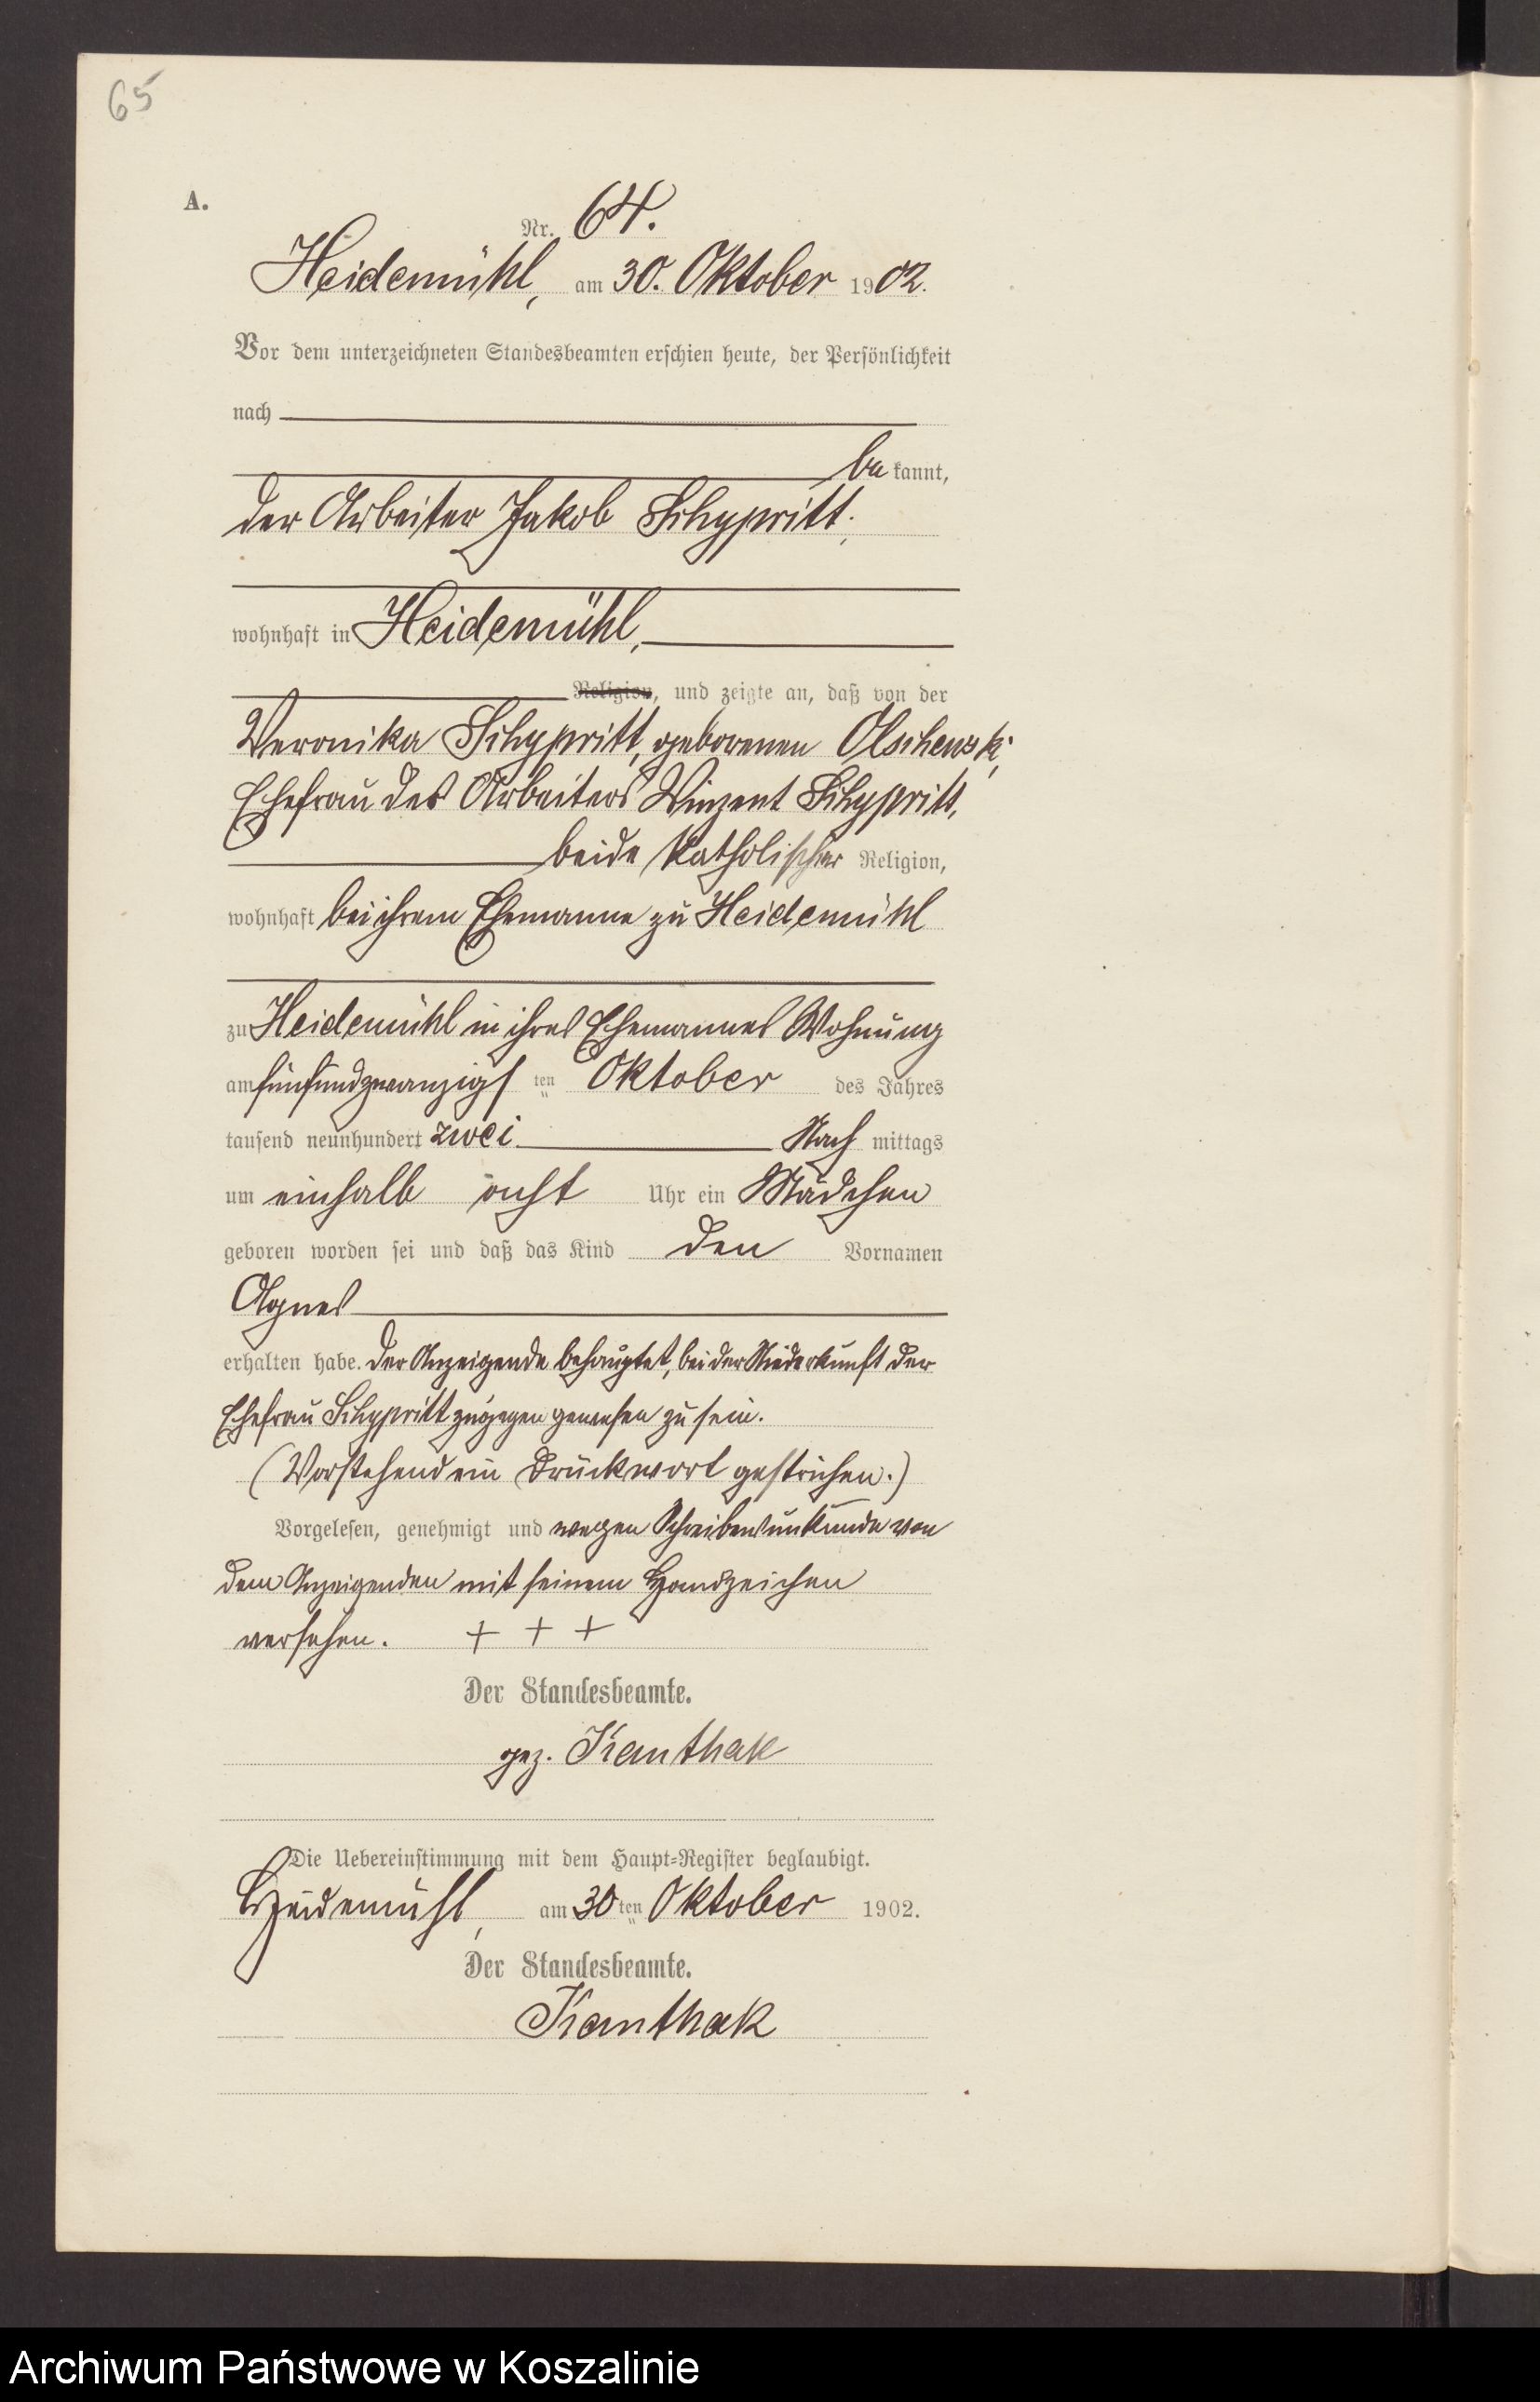 65
A.
Nr. 64.
Heidemühl, am 30. Oktober 1902.
Vor dem unterzeichneten Standesbeamten erschien heute, der Persönlichkeit
nach
be kannt,
der Arbeiter Jakob Schypritt,
wohnhaft in Heidemühl,
Religion, und zeigte an, daß von der
Veronika Schypritt, geborenen Olschewski,
Ehefrau des Arbeiters Vinzent Schypritt,
beide katholischer Religion,
wohnhaft bei ihrem Ehemanne zu Heidemühl
zu Heidemühl in ihres Ehemannes Wohnung
am fünfundzwanzigsten Oktober des Jahres
tausend neunhundert zwei Nach mittags
um einhalb acht Uhr ein Mädchen
geboren worden sei und daß das Kind den Vornamen
Agnes
erhalten habe. Der Anzeigende behauptet, bei der Niederkunft der
Ehefrau Schypritt zugegen gewesen zu sein.
(Vorstehend ein Druckwort gestrichen.)
Vorgelesen, genehmigt und wegen Schreibensunkunde von
dem Anzeigenden mit seinem Handzeichen
versehen. + + +
Der Standesbeamte.
gez. Kanthak
Die Uebereinstimmung mit dem Haupt=Register beglaubigt.
Heidemühl, am 30ten Oktober 1902.
Der Standesbeamte.
Kanthak
Archiwum Państwowe w Koszalinie